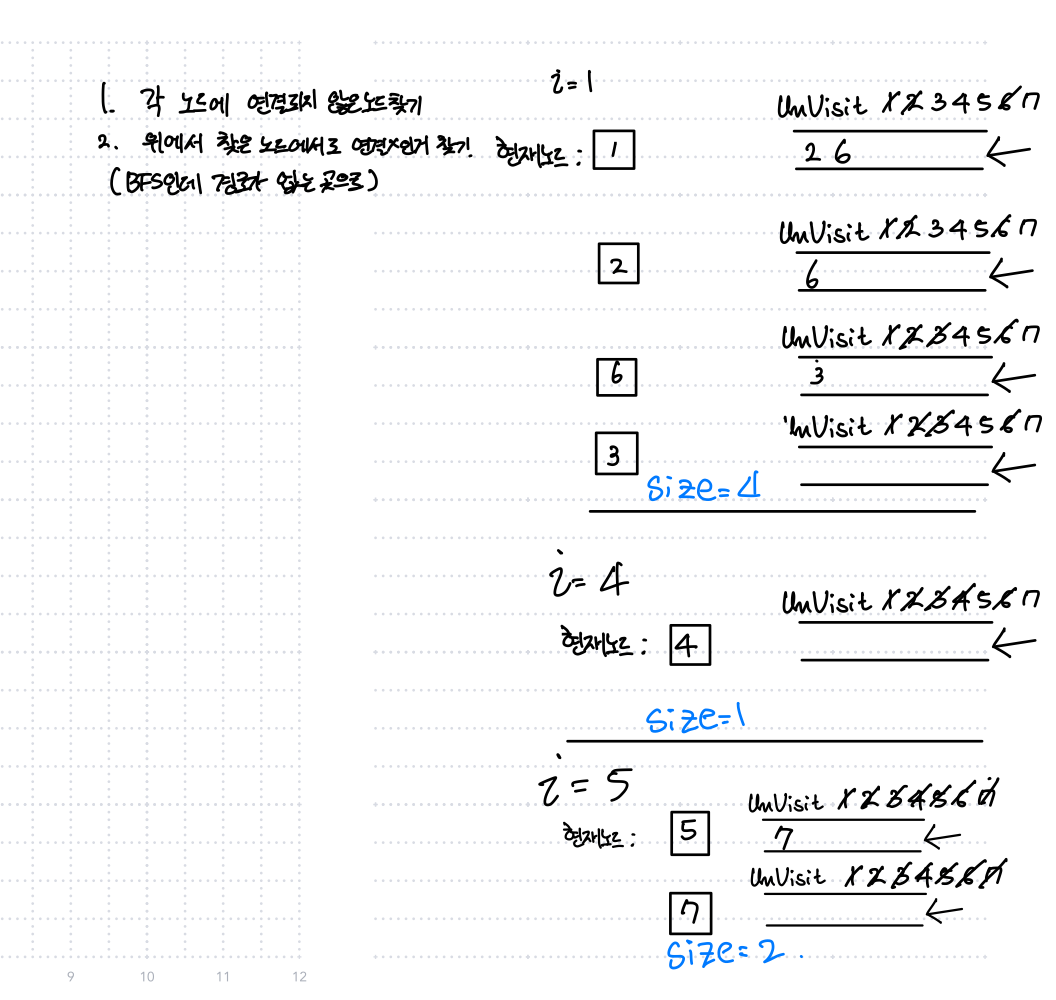 1. 각 노드에 연결되지 않은 노드 찾기
2. 위에서 찾은 노드에서로 연결x인거 찾기!
(BFS인데 경로가 없는 곳으로)
i=1
현재노드 : 1
UnVisit 1 2 3 4 5 6 7
2 6
2
UnVisit 1 2 3 4 5 6 7
6
6
UnVisit 1 2 3 4 5 6 7
3
3
UnVisit 1 2 3 4 5 6 7
Size=4
i=4
현재노드 : 4
UnVisit 1 2 3 4 5 6 7
Size=1
i=5
현재노드 : 5
UnVisit 1 2 3 4 5 6 7
7
7
UnVisit 1 2 3 4 5 6 7
Size=2.
9 10 11 12